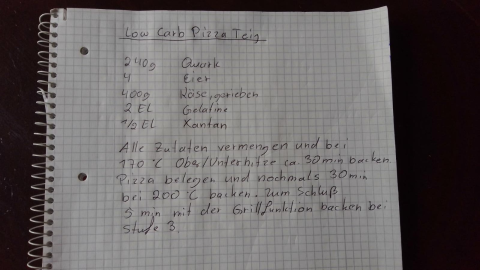 Low Carb Pizza Teig
240g Quark
4 Eier
400g Käse, gerieben
2 EL Gelatine
1/2 EL Xantan
Alle Zutaten vermengen und bei
170°C Ober/Unterhitze ca. 30 min backen.
Pizza belegen und nochmals 30 min
bei 200°C backen. Zum Schluß
5 min mit der Grillfunktion backen bei
Stufe 3.